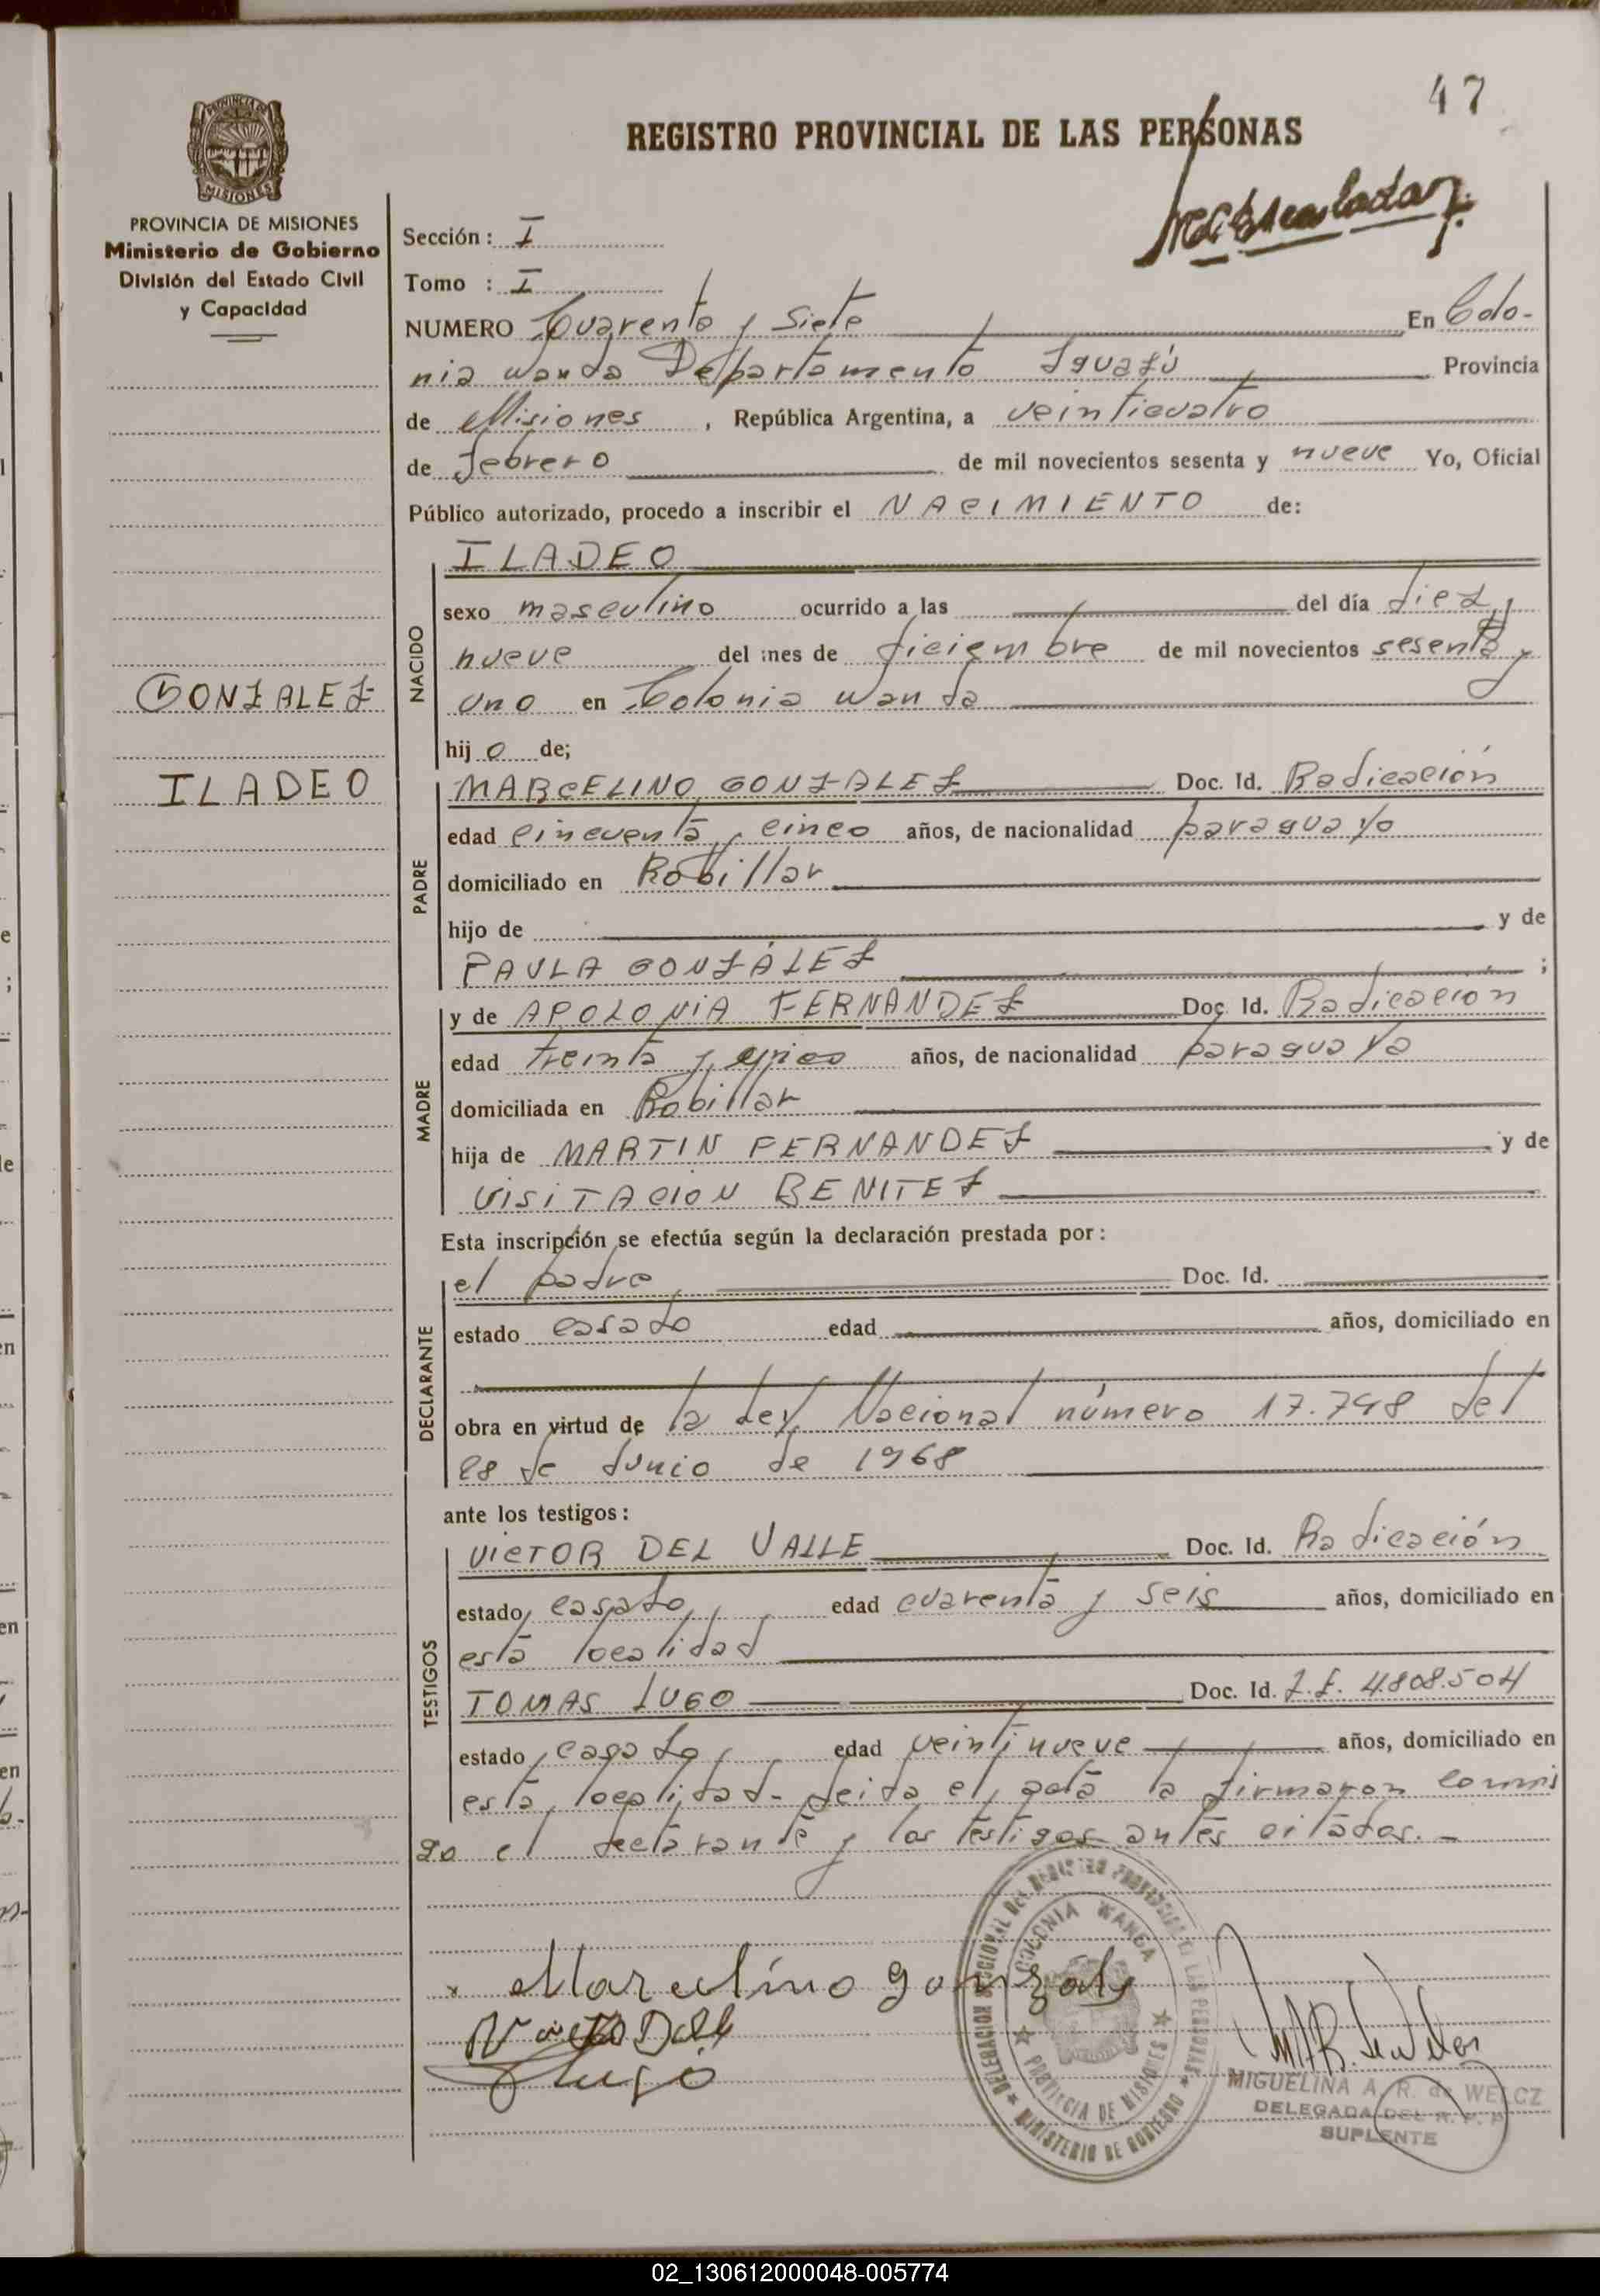 47
REGISTRO PROVINCIAL DE LAS PERSONAS
PROVINCIA DE MISIONES
Ministerio de Gobierno
División del Estado Civil
y Capacidad
Sección: I
Tomo : I
NUMERO Cuarenta y Siete En Colo-
nia Wanda Departamento Iguazú Provincia
de Misiones, República Argentina, a veinticuatro
de febrero de mil novecientos sesenta y nueve Yo, Oficial
Público autorizado, procedo a inscribir el NACIMIENTO de:
GONZALEZ
ILADEO
NACIDO
ILADEO
sexo masculino ocurrido a las del día diez y
nueve del mes de diciembre de mil novecientos sesenta y
uno en Colonia Wanda
hijo de;
PADRE
MARCELINO GONZALEZ Doc. Id. Radicación
edad cincuenta y cinco años, de nacionalidad paraguayo
domiciliado en Robillar
hijo de y de
PAULA GONZÁLEZ ;
MADRE
y de APOLONIA FERNANDEZ Doc. Id. Radicacion
edad treinta y cinco años, de nacionalidad paraguaya
domiciliada en Robillar
hija de MARTIN FERNANDEZ y de
VISITACION BENITEZ
Esta inscripción se efectúa según la declaración prestada por:
DECLARANTE
el padre Doc. Id.
estado casado edad años, domiciliado en
obra en virtud de la ley Nacional número 17.748 del
28 de Junio de 1968
ante los testigos:
TESTIGOS
VICTOR DEL VALLE Doc. Id. Radicación
estado casado edad cuarenta y seis años, domiciliado en
esta localidad
TOMAS LUGO Doc. Id. 4.808.504
estado casado edad veintinueve años, domiciliado en
esta localidad- Leida el acta la firmaron conmi
go el declarante y los testigos antes citados.-
Marcelino Gonzalez
Lugo
DELEGACION SECCIONAL DEL REGISTRO PROVINCIAL DE LAS PERSONAS
COLONIA WANDA
PROVINCIA DE MISIONES
MINISTERIO DE GOBIERNO
MIGUELINA A. R. de WELCZ
DELEGADA DEL R. P. P.
SUPLENTE
02_130612000048-005774